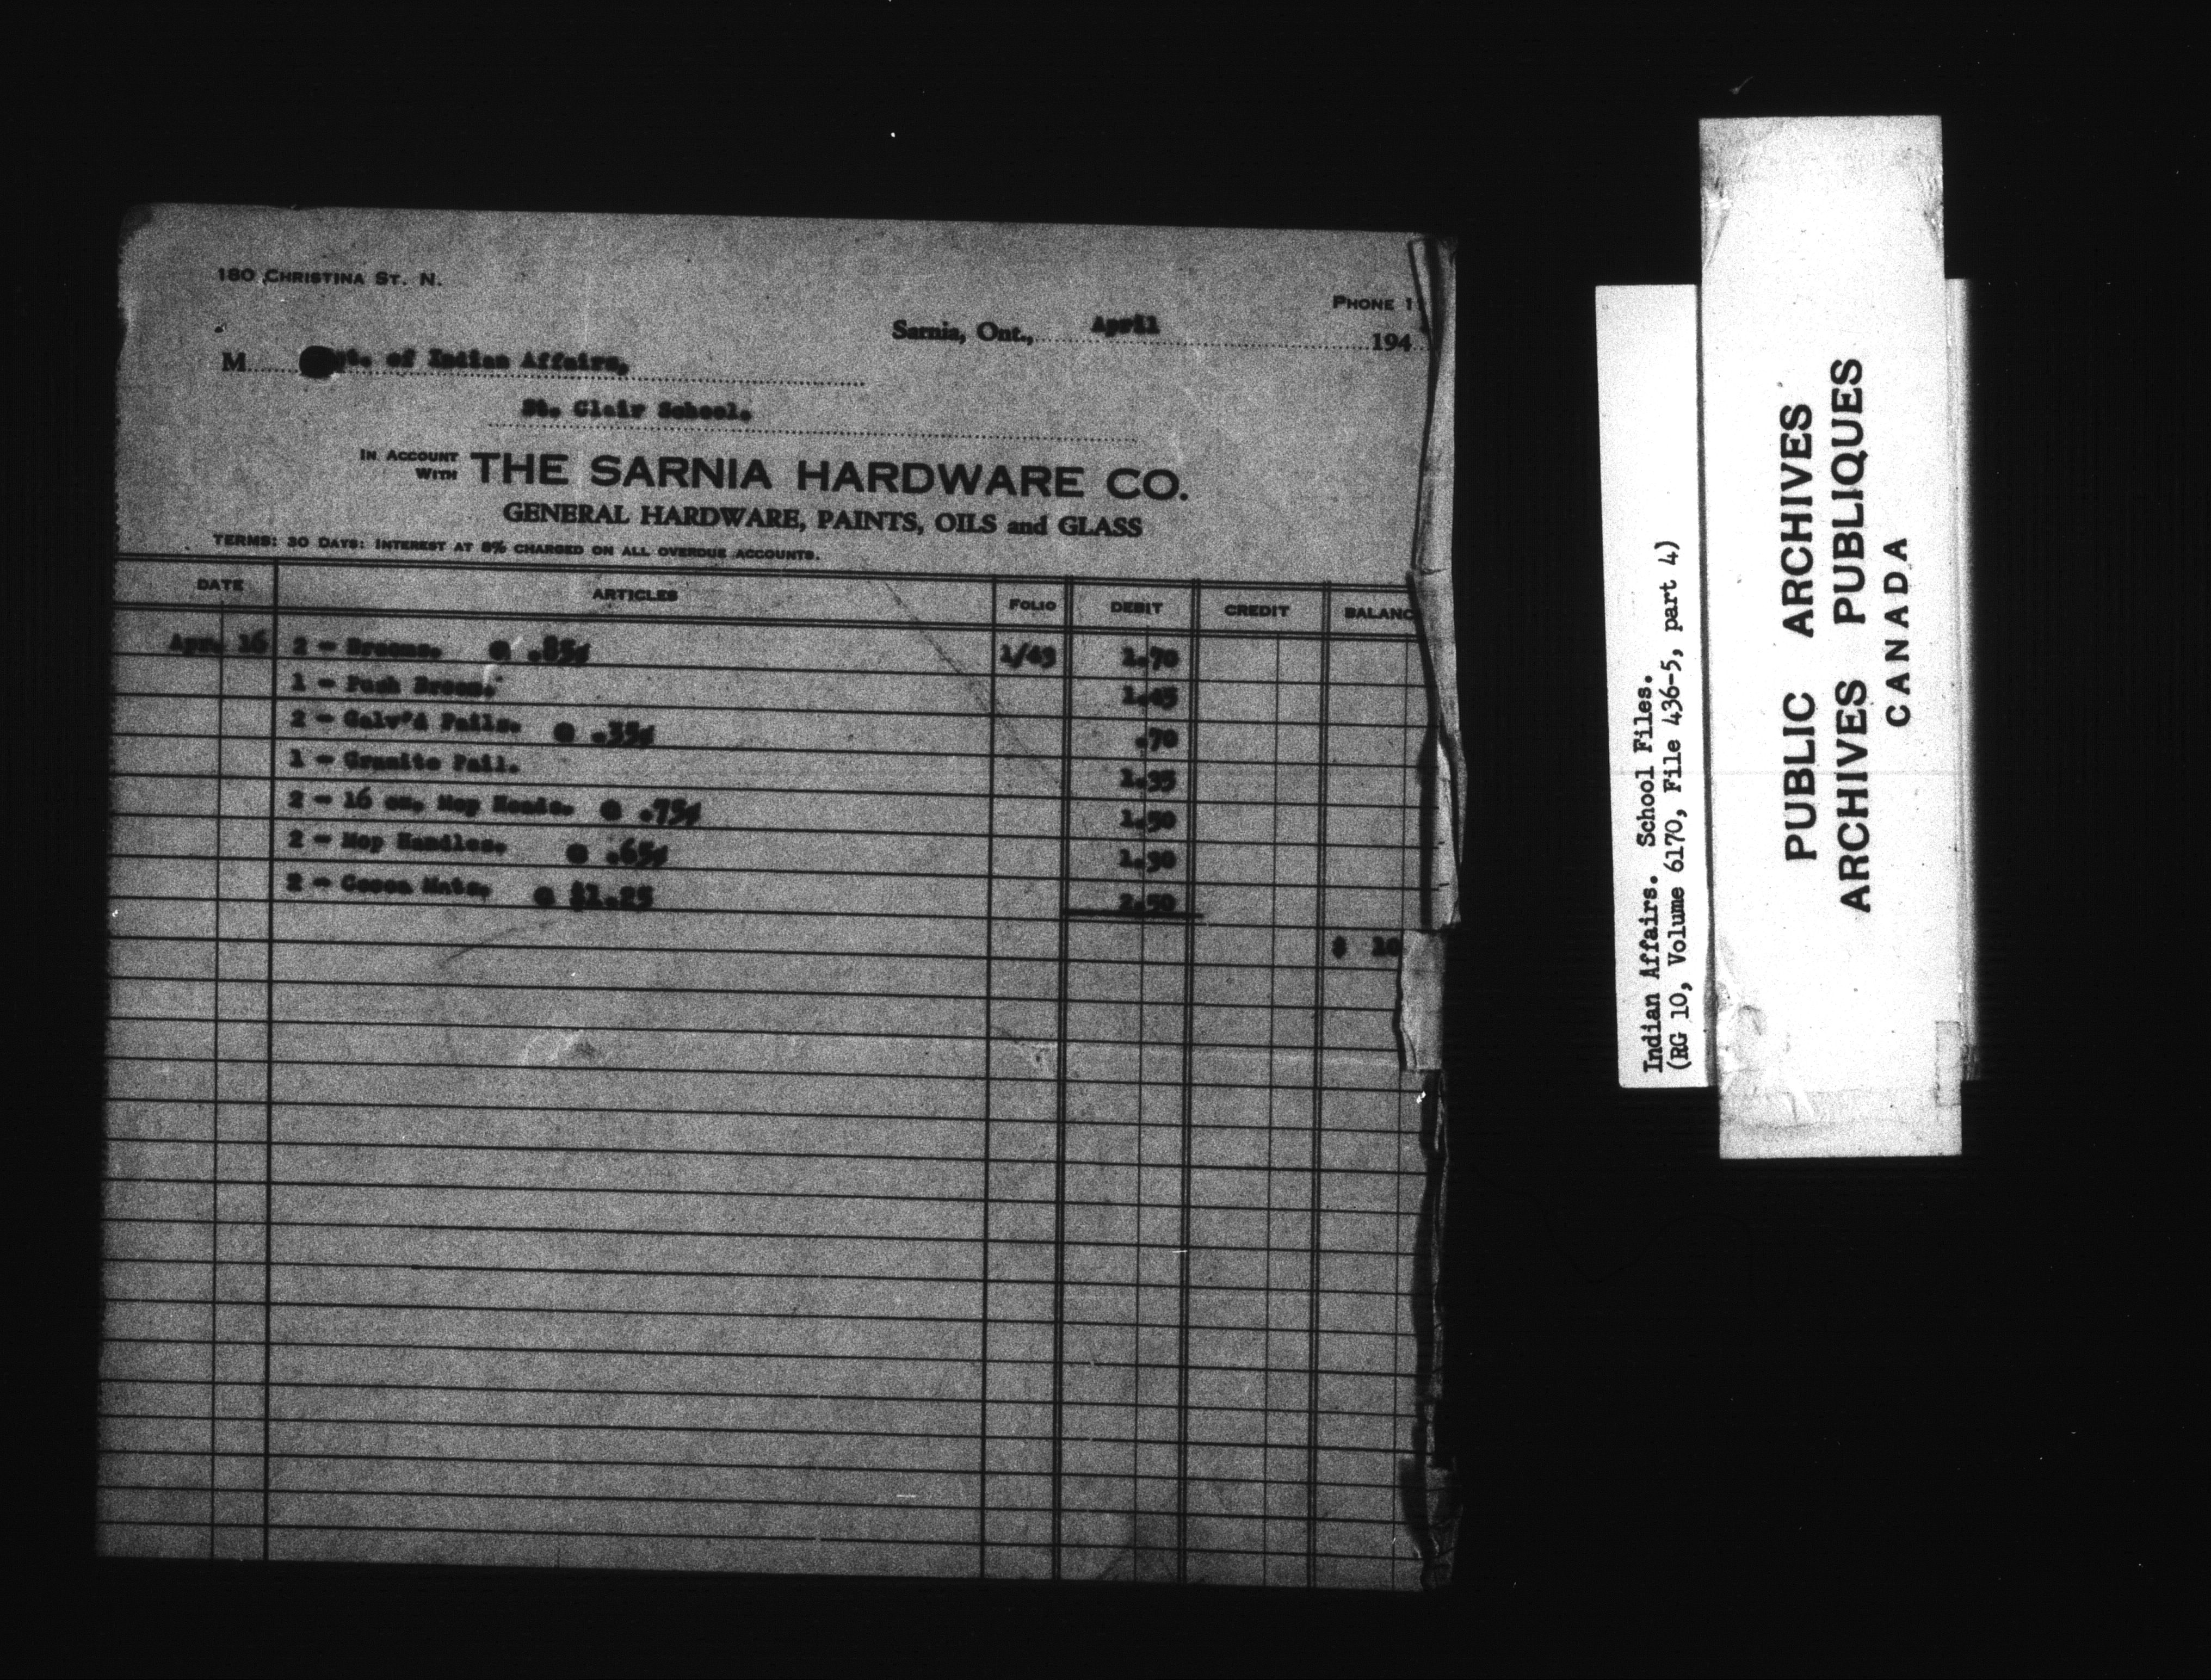 180 CHRISTINA ST. N.
PHONE 1
Sarnia, Ont., April 194
M pt. of Indian Affairs,
St. Clair School.
IN ACCOUNT WITH THE SARNIA HARDWARE CO.
GENERAL HARDWARE, PAINTS, OILS and GLASS
TERMS: 30 DAYS: INTEREST AT 8% CHARGED ON ALL OVERDUE ACCOUNTS.
DATE ARTICLES FOLIO DEBIT CREDIT BALANC
Apr. 16 2 - Brooms. @ .85¢ 1/49 1.70
1 - Push Broom. 1.45
2 - Galv'd Pails. @ .35¢ .70
1 - Granite Pail. 1.35
2 - 16 oz. Mop Heads. @ .75¢ 1.50
2 - Mop Handles. @ .65¢ 1.30
2 - Cocoa Mats. @ $1.25 2.50
$ 10
Indian Affairs. School Files.
(RG 10, Volume 6170, File 436-5, part 4)
PUBLIC ARCHIVES
ARCHIVES PUBLIQUES
CANADA